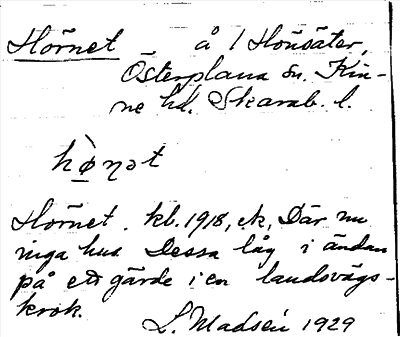 Hörnet å 1 Hönsäter,
Österplana sn. Kin-
ne hd. Skarab. l.
hø̀ṇət
Hörnet. kb. 1918, ek, Där nu
inga hus. Dessa låg i ändan
på ett gärde i en landsvägs-
krok.
L. Madsén 1929